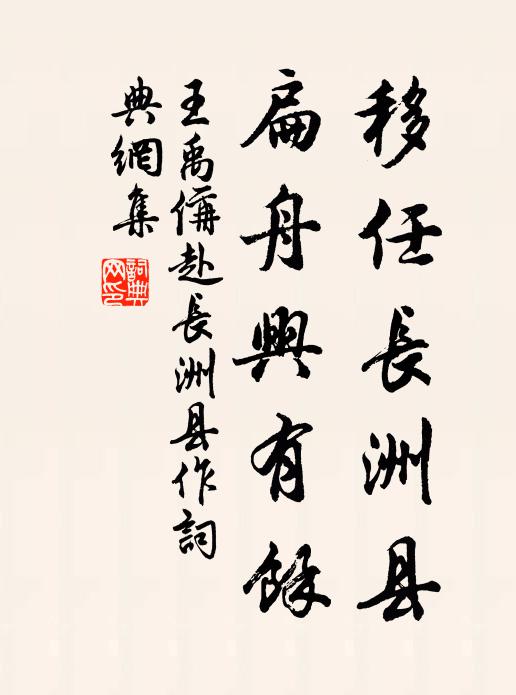 移任長洲县
扁舟興有餘
王禹偁赴長洲县作詞
典網集
詞典網印